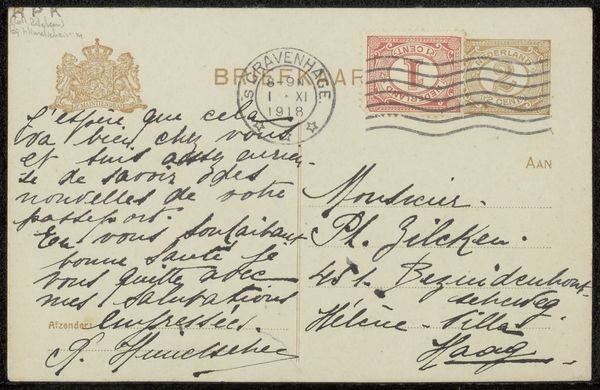 RPK
BRIEFKAART
'S GRAVENHAGE
8-9 N
1 XI
1918
1 CENT
1
NEDERLAND
NEDERLAND
2
CENT
JE MAINTIENDRAI
AAN
J'espère que cela
va bien chez vous
et suis aussi curieu-
se de savoir des
nouvelles de votre
passeport.
En vous souhaitant
bonne santé je
vous quitte avec
mes salutations
empressées.
Afzender:
Monsieur
Ph. Zilcken.
Bezuidenhout-
scheweg.
Hélène-Villa
Haag